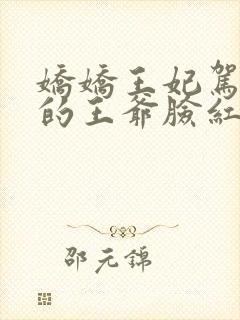 嬌嬌王妃駕
的王爺臉紅
邵元錦